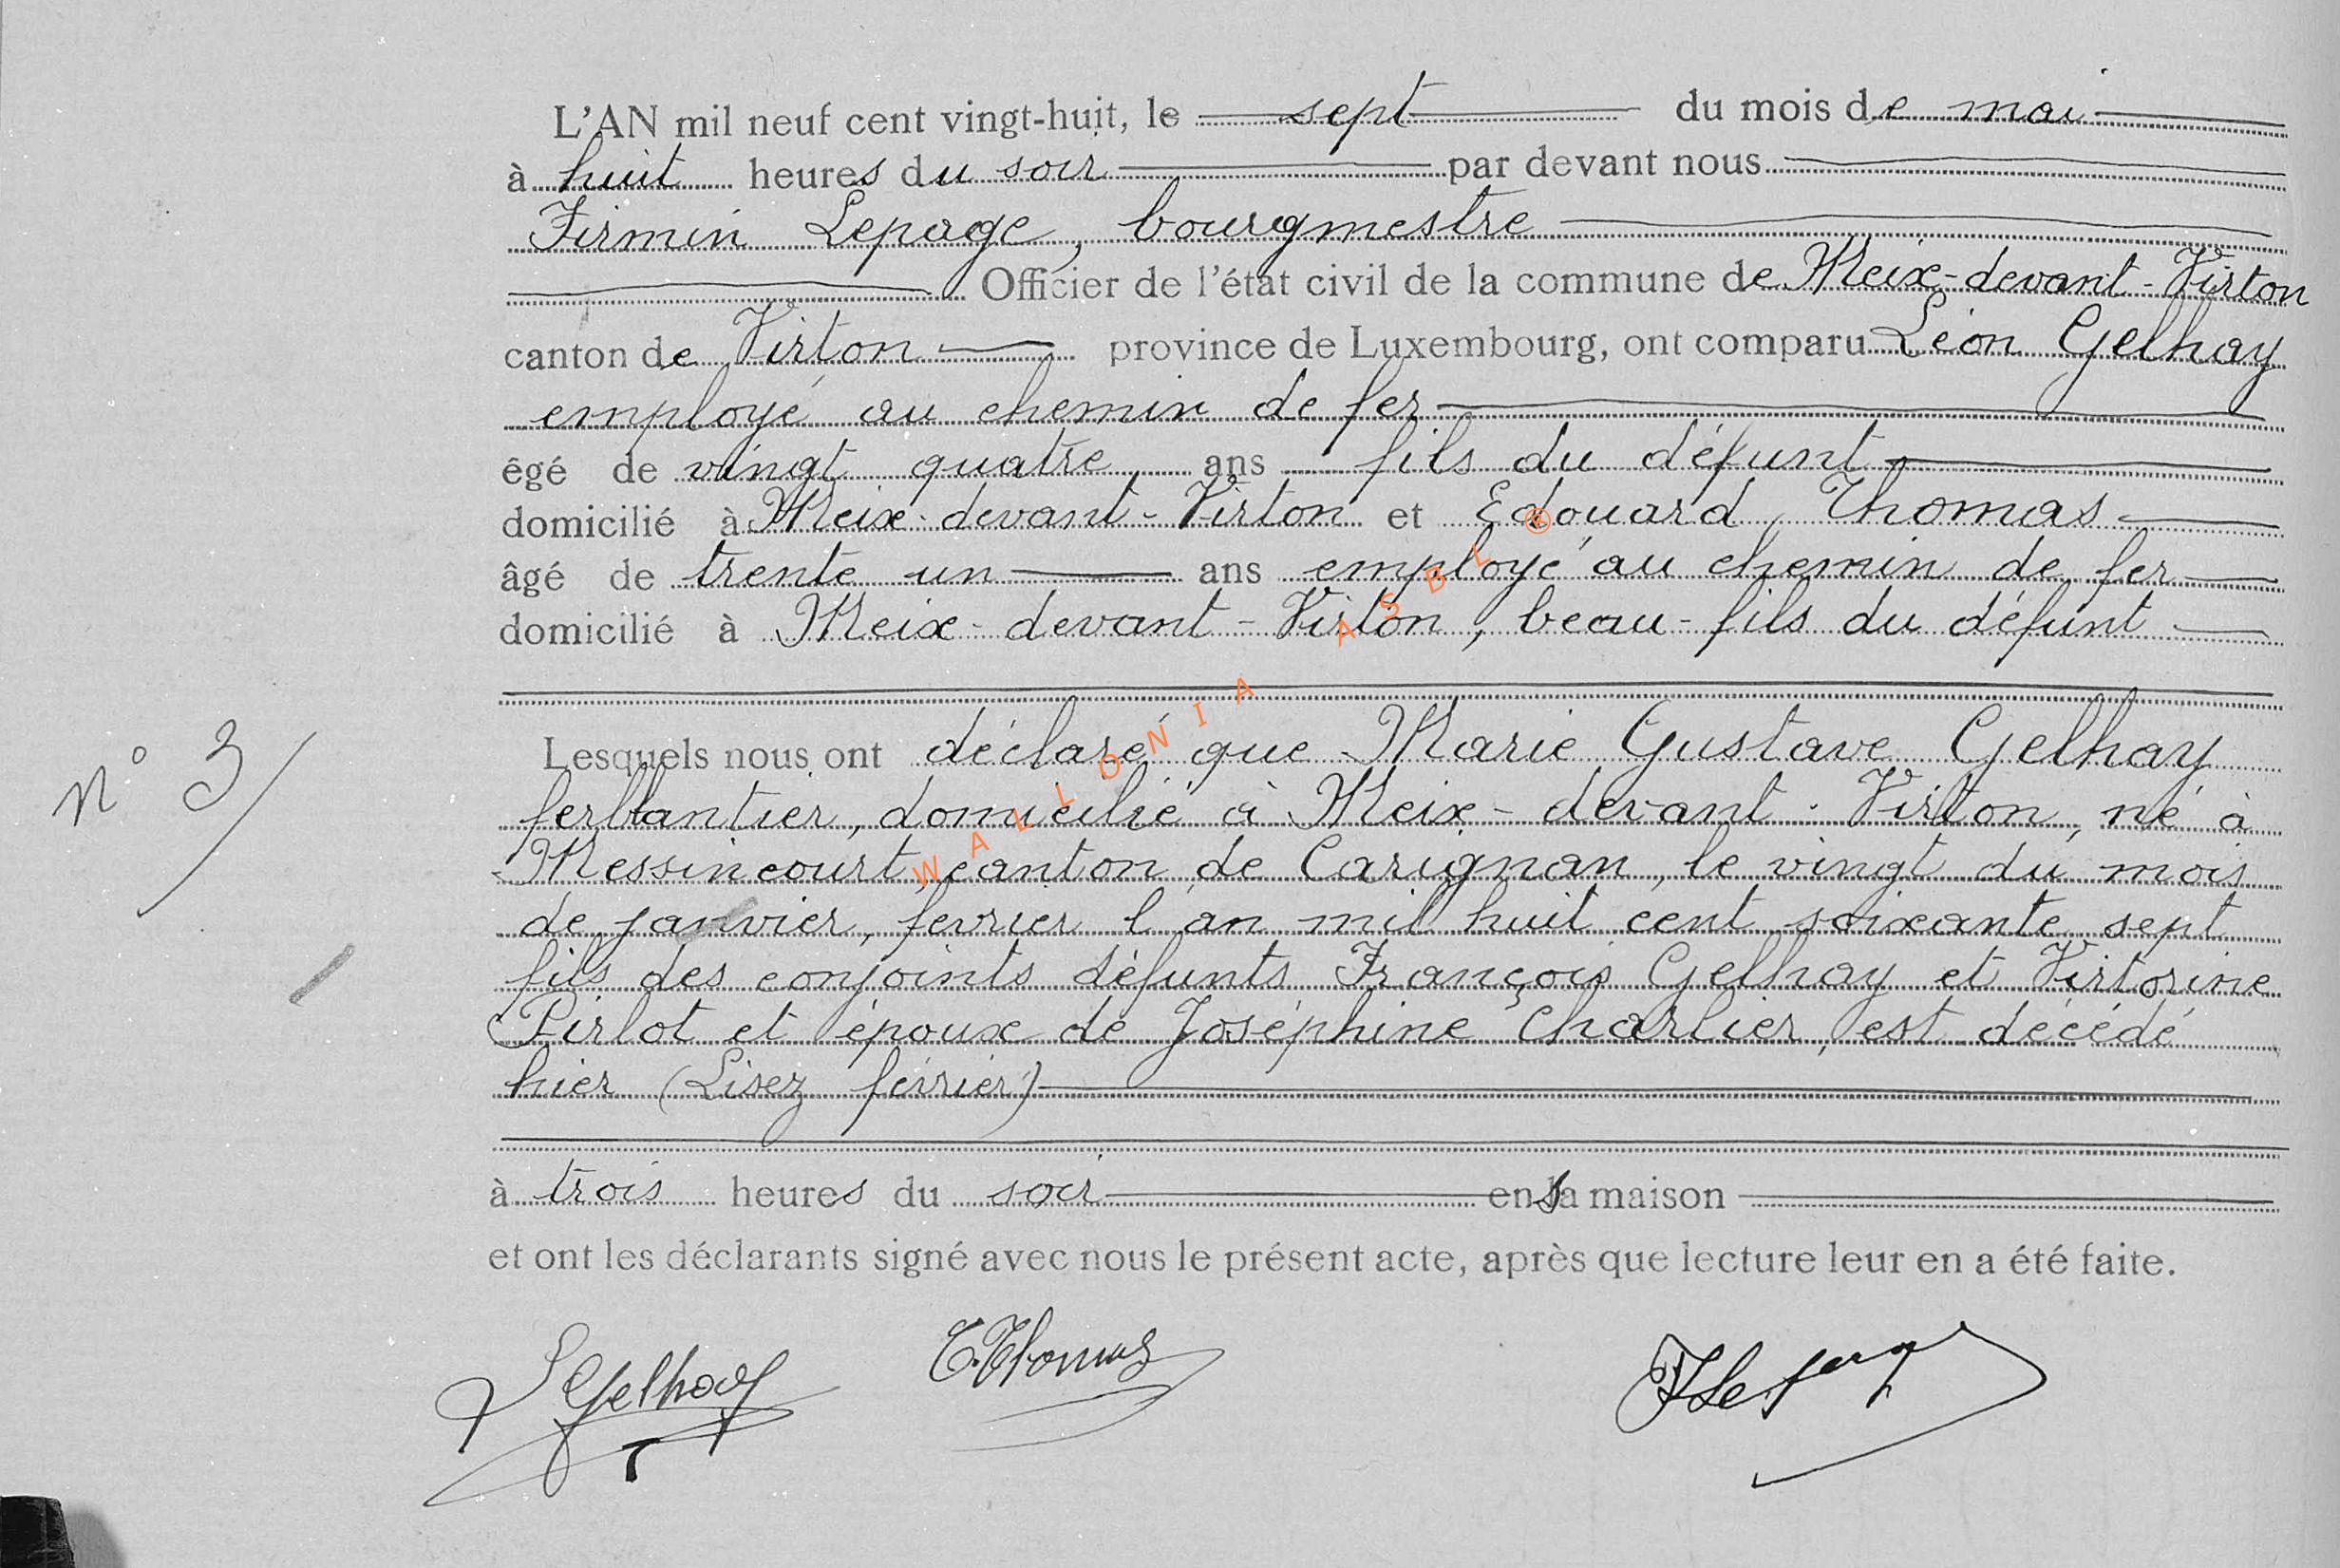 L'AN mil neuf cent vingt-huit, le sept du mois de mai
à huit heures du soir par devant nous
Firmin Lepage, bourgmestre
Officier de l'état civil de la commune de Meix-devant-Virton
canton de Virton province de Luxembourg, ont comparu Léon Gelhay
employé au chemin de fer
êgé de vingt quatre ans fils du défunt
domicilié à Meix-devant-Virton et Edouard Thomas
âgé de trente un ans employé au chemin de fer
domicilié à Meix-devant-Virton, beau-fils du défunt
N° 3/
Lesquels nous ont déclaré que Marie Gustave Gelhay
ferblantier, domicilié à Meix-devant-Virton, né à
Messincourt, canton de Carignan, le vingt du mois
de janvier, fevrier l'an mil huit cent soixante sept
fils des conjoints défunts François Gelhay et Virtorine
Pirlot et époux de Joséphine Charlier, est décédé
hier (Lisez février)
à trois heures du soir en sa maison
et ont les déclarants signé avec nous le présent acte, après que lecture leur en a été faite.
L Gelhay E. Thomas F Lepage
WALLONIA ASBL ®